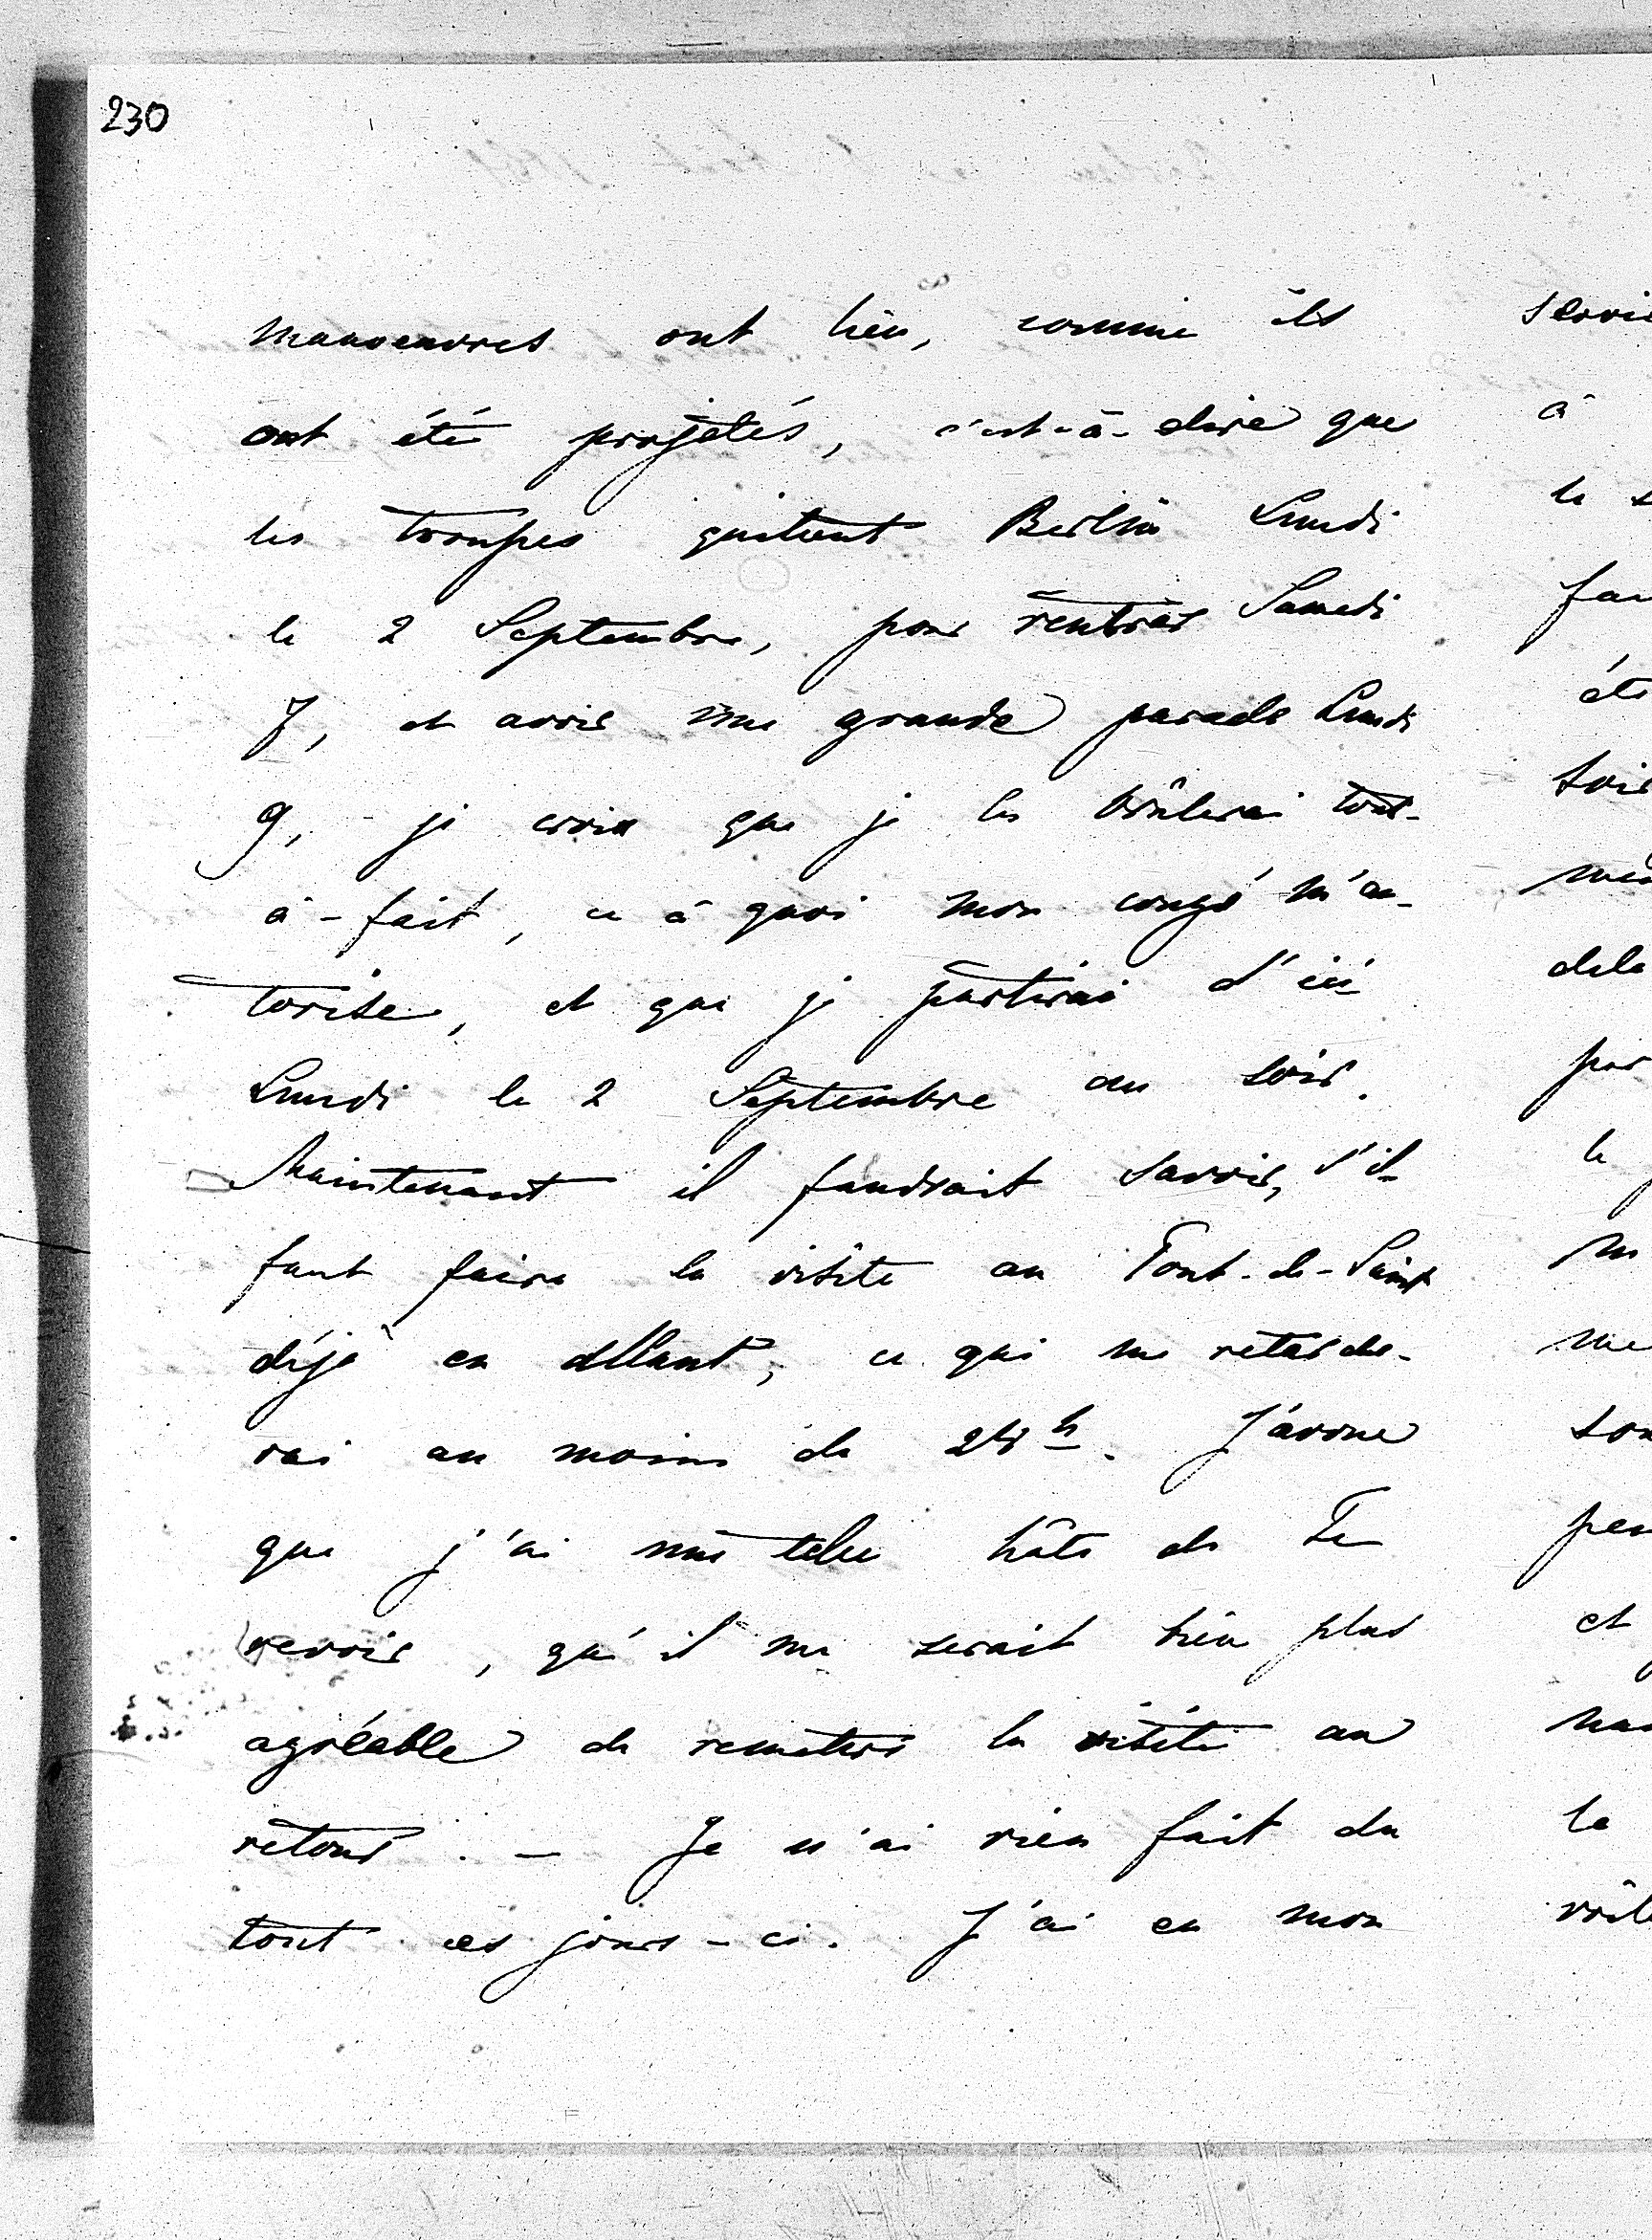 230
manoeuvres ont lieu, comme ils
ont été projetés, c'est-à-dire que
les troupes quitent Berlin Lundi
le 2 Septembre, pour rentrer Samedi
7, et avoir une grande parade Lundi
9, je crois que je les brûlerai tout-
à-fait, ce à quoi mon congé m'au-
torise, et que je partirai d'ici
Lundi le 2 Septembre au soir.
Maintenant il faudrait savoir, s'il
faut faire la visite au Pont-de-Saint
déjà en allant, ce qui me retarde-
rai au moins de 24 h. J'avoue
que j'ai une telle hâte de Te
revoir, qu'il me serait bien plus
agréable de remettre la visite au
retour. — Je n'ai rien fait du
tout ces jours-ci. J'ai eu mon
à
le
par
le
et
la